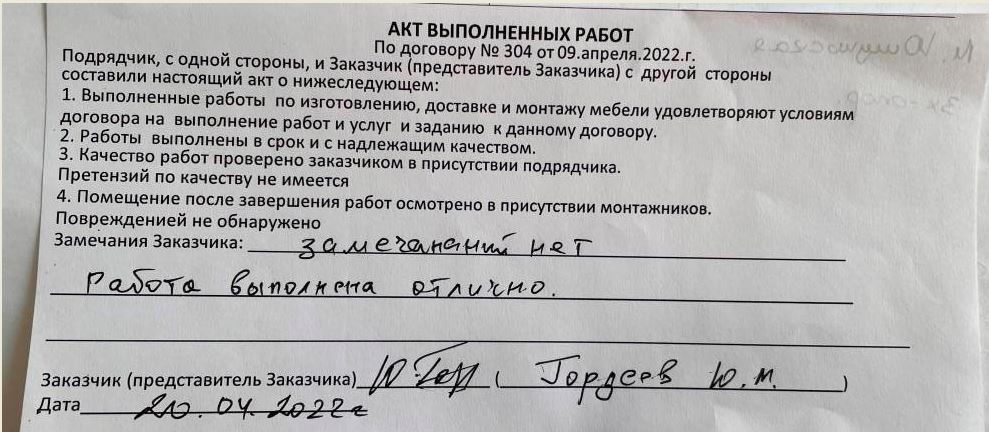 АКТ ВЫПОЛНЕННЫХ РАБОТ
По договору № 304 от 09.апреля.2022.г.
Подрядчик, с одной стороны, и Заказчик (представитель Заказчика) с другой стороны
составили настоящий акт о нижеследующем:
1. Выполненные работы по изготовлению, доставке и монтажу мебели удовлетворяют условиям
договора на выполнение работ и услуг и заданию к данному договору.
2. Работы выполнены в срок и с надлежащим качеством.
3. Качество работ проверено заказчиком в присутствии подрядчика.
Претензий по качеству не имеется
4. Помещение после завершения работ осмотрено в присутствии монтажников.
Поврежденией не обнаружено
Замечания Заказчика: замечананий нет
Работа выполнена отлично.
Заказчик (представитель Заказчика) ( Гордеев Ю.М. )
Дата 20.04.2022г